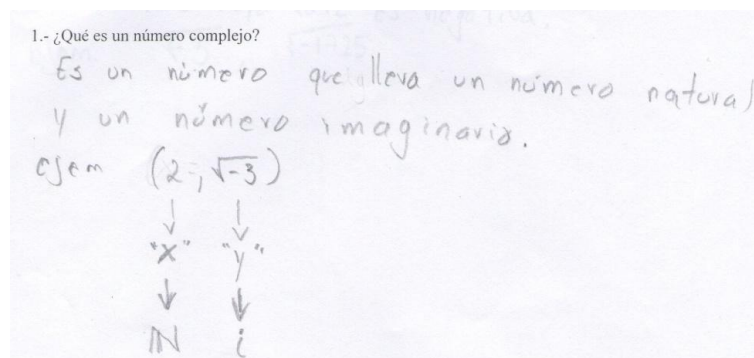 1.- ¿Qué es un número complejo?
Es un número que lleva un número natural
y un número imaginario.
ejem (2 ; √-3)
↓ ↓
"x" "y"
↓ ↓
ℕ i